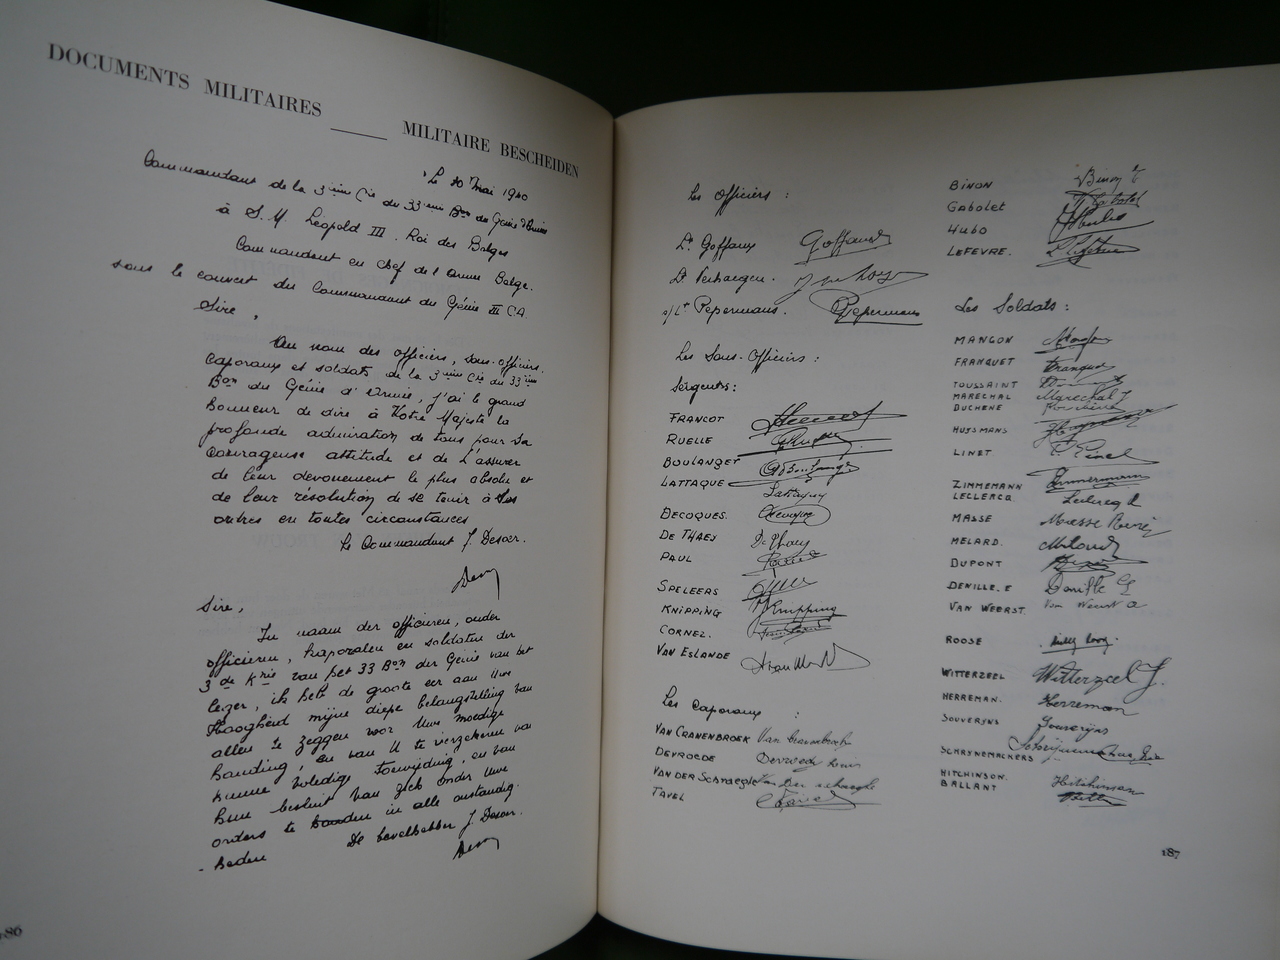 DOCUMENTS MILITAIRES ____ MILITAIRE BESCHEIDEN
Le 30 Mai 1940
Commandant de la 3ième Cie du 33ième Bon du Génie d'Armée
à S.M. Léopold III. Roi des Belges
Commandant en Chef de l'Armée Belge.
sous le couvert du Commandant du Génie III CA.
Sire,
Au nom des officiers, sous-officiers,
Caporaux et soldats de la 3ième Cie du 33ième
Bon du Génie d'Armée, j'ai le grand
honneur de dire à Votre Majesté la
profonde admiration de tous pour sa
courageuse attitude et de l'assurer
de leur dévouement le plus absolu et
de leur résolution de se tenir à Ses
ordres en toutes circonstances
Le Commandant J. Deser.
Sire,
In naam der officieren, onder
officieren, Kaporalen en soldaten der
3de Kie van het 33 Bon der Genie van het
leger, ik heb de groote eer aan Uwe
Hoogheid mijne diepe belangstelling van
allen te zeggen voor Uwe moedige
houding, en van U te verzekeren van
hunne volledige toewijding, en van
hun besluit van zich onder Uwe
orders te houden in alle omstandig-
heden De bevelhebber J. Deser.
186
Les Officiers :
Lt Goffaux Goffaux
Lt Verhaegen.
s/Lt Pepermans. Pepermans
Les Sous-Officiers :
Sergents :
FRANCOT
RUELLE
BOULANGER
LATTAQUE
DECOQUES.
DE THAEY
PAUL
SPELEERS
KNIPPING Knipping
CORNEZ.
VAN ESLANDE
Les Caporaux :
VAN CRANENBROEK Van Cranenbroek
DEVROEDE
VAN DER SCHRAEGHE
TAVEL
BINON Binon
GABOLET
HUBO
LEFEVRE.
Les Soldats :
MANGON
FRANQUET Franquet
TOUSSAINT
MARECHAL Marechal J
DUCHENE
HUYSMANS
LINET
ZIMMEMANN Zimmermann
LECLERCQ Leclercq
MASSE Masse René
MELARD.
DUPONT
DENILLE.E
VAN WEERST. Van Weerst a
ROOSE
WITTERZEEL Witterzeel J.
HERREMAN. Herreman
SOUVERYNS Souverijns
SCHRYNEMACKERS
HITCHINSON. Hitchinson
BALLANT
187